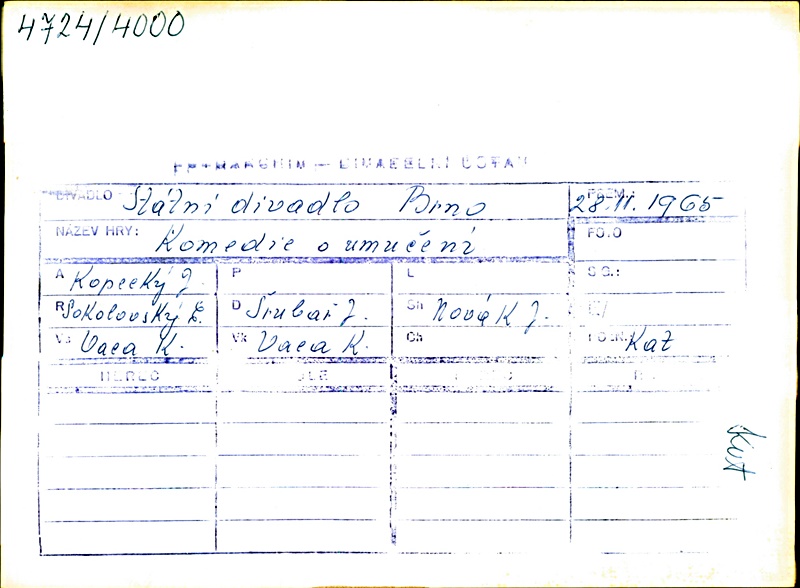 4724/4000
DIVADLO Státní divadlo Brno PREM.: 28.11.1965
NÁZEV HRY: Komedie o umučení FOTO
A Kopecký J. P L S G.:
R Sokolovský E. D Štrubař J. Sh Novák J. Č/
Vs Vaca K. Vk Vaca K. Ch Kat
HEREC
Kut